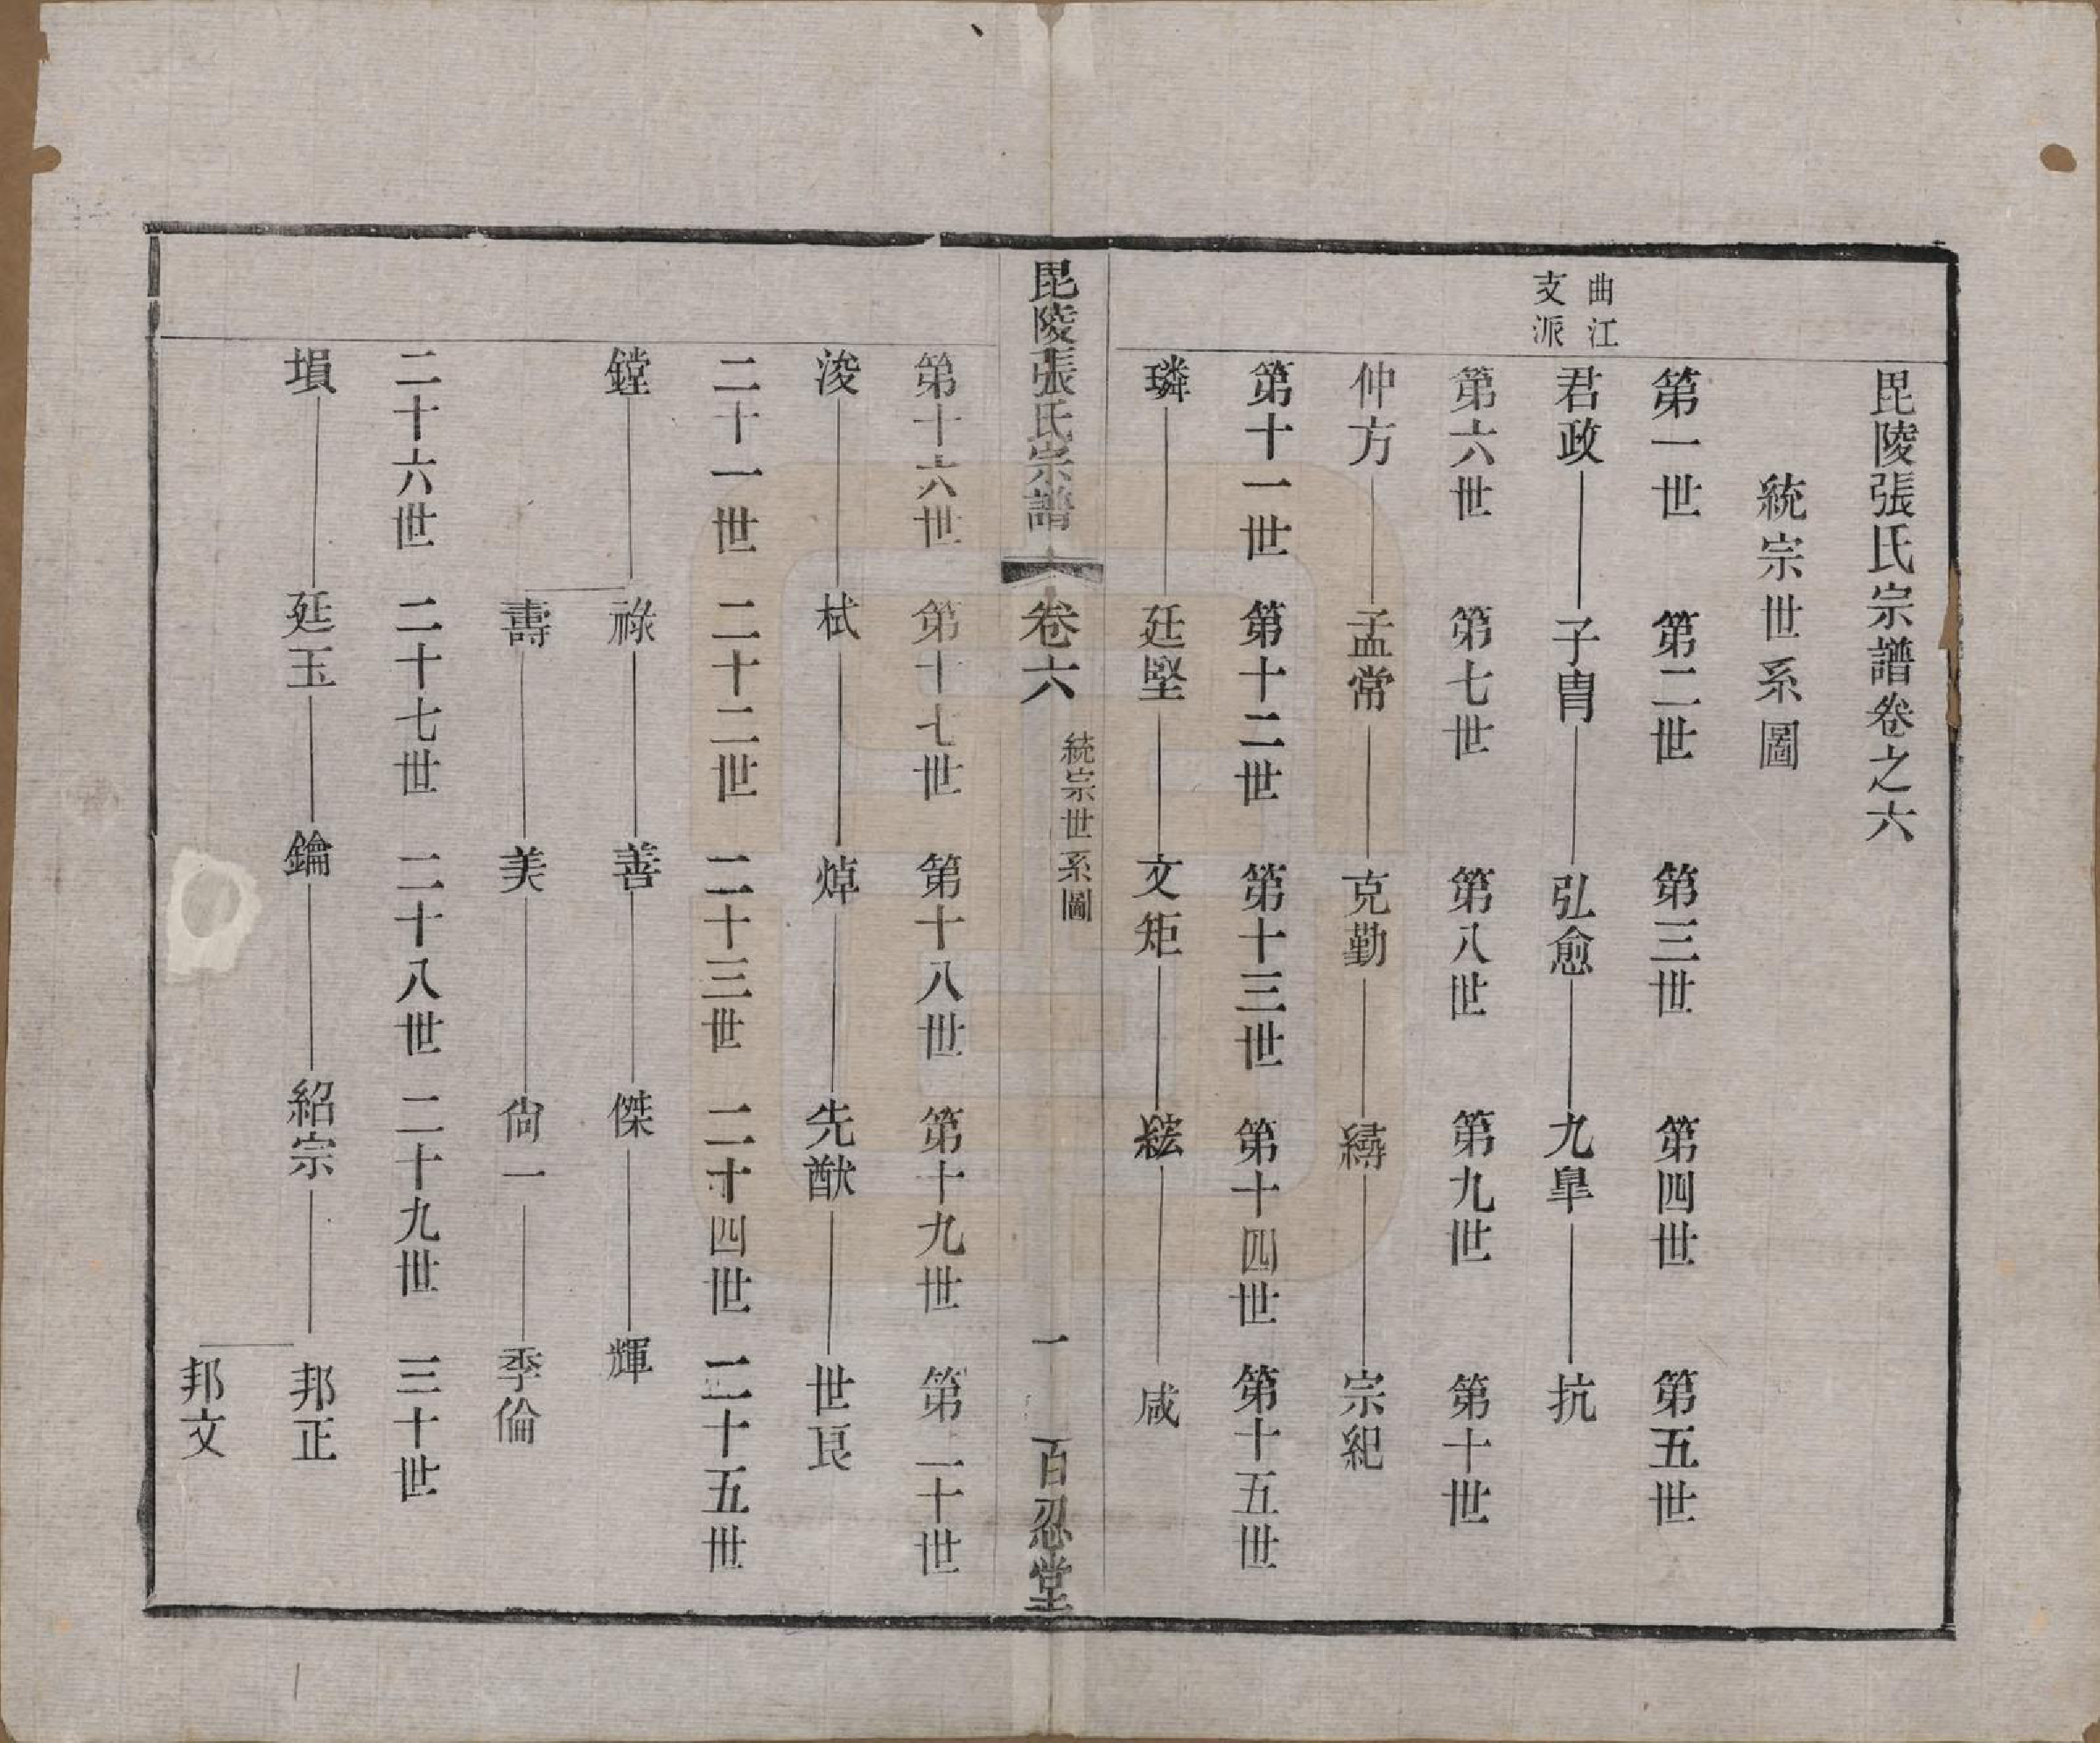 毘陵張氏宗譜卷之六
統宗世系圖
曲江
支派
第一世 第二世 第三世 第四世 第五世
君政 子胄 弘愈 九臯 抗
第六世 第七世 第八世 第九世 第十世
仲方 孟常 克勤 縳 宗紀
第十一世 第十二世 第十三世 第十四世 第十五世
璘 廷堅 文矩 紘 咸
毘陵張氏宗譜 卷六 統宗世系圖 一 百忍堂
第十六世 第十七世 第十八世 第十九世 第二十世
浚 栻 焯 先猷 世良
二十一世 二十二世 二十三世 二十四世 二十五世
鏜 祿 善 傑 輝
壽 美 尙一 季倫
二十六世 二十七世 二十八世 二十九世 三十世
塤 廷玉 鑰 紹宗 邦正
邦文